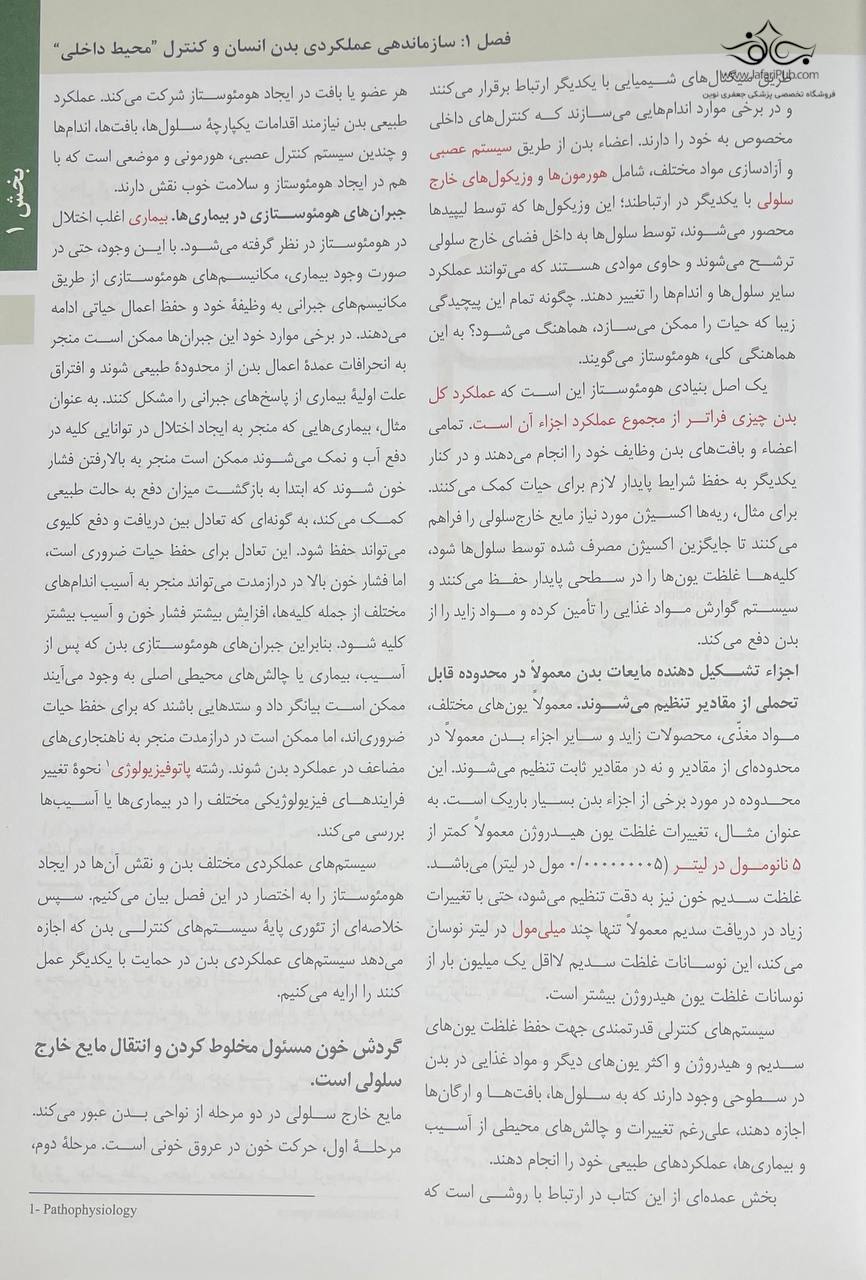 فصل ۱: سازماندهی عملکردی بدن انسان و کنترل "محیط داخلی"
بخش ۱
www.JafariPub.com
فروشگاه تخصصی پزشکی جعفری نوین
طریق سیگنال‌های شیمیایی با یکدیگر ارتباط برقرار می‌کنند
و در برخی موارد اندام‌هایی می‌سازند که کنترل‌های داخلی
مخصوص به خود را دارند. اعضاء بدن از طریق سیستم عصبی
و آزادسازی مواد مختلف، شامل هورمون‌ها و وزیکول‌های خارج
سلولی با یکدیگر در ارتباطند؛ این وزیکول‌ها که توسط لیپیدها
محصور می‌شوند، توسط سلول‌ها به داخل فضای خارج سلولی
ترشح می‌شوند و حاوی موادی هستند که می‌توانند عملکرد
سایر سلول‌ها و اندام‌ها را تغییر دهند. چگونه تمام این پیچیدگی
زیبا که حیات را ممکن می‌سازد، هماهنگ می‌شود؟ به این
هماهنگی کلی، هومئوستاز می‌گویند.
یک اصل بنیادی هومئوستاز این است که عملکرد کل
بدن چیزی فراتر از مجموع عملکرد اجزاء آن است. تمامی
اعضاء و بافت‌های بدن وظایف خود را انجام می‌دهند و در کنار
یکدیگر به حفظ شرایط پایدار لازم برای حیات کمک می‌کنند.
برای مثال، ریه‌ها اکسیژن مورد نیاز مایع خارج‌سلولی را فراهم
می‌کنند تا جایگزین اکسیژن مصرف شده توسط سلول‌ها شود،
کلیه‌ها غلظت یون‌ها را در سطحی پایدار حفظ می‌کنند و
سیستم گوارش مواد غذایی را تأمین کرده و مواد زاید را از
بدن دفع می‌کند.
اجزاء تشکیل دهنده مایعات بدن معمولاً در محدوده قابل
تحملی از مقادیر تنظیم می‌شوند. معمولاً یون‌های مختلف،
مواد مغذّی، محصولات زاید و سایر اجزاء بدن معمولاً در
محدوده‌ای از مقادیر و نه در مقادیر ثابت تنظیم می‌شوند. این
محدوده در مورد برخی از اجزاء بدن بسیار باریک است. به
عنوان مثال، تغییرات غلظت یون هیدروژن معمولاً کمتر از
۵ نانومول در لیتر (۰/۰۰۰۰۰۰۰۰۵ مول در لیتر) می‌باشد.
غلظت سدیم خون نیز به دقت تنظیم می‌شود، حتی با تغییرات
زیاد در دریافت سدیم معمولاً تنها چند میلی‌مول در لیتر نوسان
می‌کند، این نوسانات غلظت سدیم لااقل یک میلیون بار از
نوسانات غلظت یون هیدروژن بیشتر است.
سیستم‌های کنترلی قدرتمندی جهت حفظ غلظت یون‌های
سدیم و هیدروژن و اکثر یون‌های دیگر و مواد غذایی در بدن
در سطوحی وجود دارند که به سلول‌ها، بافت‌ها و ارگان‌ها
اجازه دهند، علی‌رغم تغییرات و چالش‌های محیطی از آسیب
و بیماری‌ها، عملکردهای طبیعی خود را انجام دهند.
بخش عمده‌ای از این کتاب در ارتباط با روشی است که
هر عضو یا بافت در ایجاد هومئوستاز شرکت می‌کند. عملکرد
طبیعی بدن نیازمند اقدامات یکپارچهٔ سلول‌ها، بافت‌ها، اندام‌ها
و چندین سیستم کنترل عصبی، هورمونی و موضعی است که با
هم در ایجاد هومئوستاز و سلامت خوب نقش دارند.
جبران‌های هومئوستازی در بیماری‌ها. بیماری اغلب اختلال
در هومئوستاز در نظر گرفته می‌شود. با این وجود، حتی در
صورت وجود بیماری، مکانیسم‌های هومئوستازی از طریق
مکانیسم‌های جبرانی به وظیفهٔ خود و حفظ اعمال حیاتی ادامه
می‌دهند. در برخی موارد خود این جبران‌ها ممکن است منجر
به انحرافات عمدهٔ اعمال بدن از محدودهٔ طبیعی شوند و افتراق
علت اولیهٔ بیماری از پاسخ‌های جبرانی را مشکل کنند. به عنوان
مثال، بیماری‌هایی که منجر به ایجاد اختلال در توانایی کلیه در
دفع آب و نمک می‌شوند ممکن است منجر به بالارفتن فشار
خون شوند که ابتدا به بازگشت میزان دفع به حالت طبیعی
کمک می‌کند، به گونه‌ای که تعادل بین دریافت و دفع کلیوی
می‌تواند حفظ شود. این تعادل برای حفظ حیات ضروری است،
اما فشار خون بالا در درازمدت می‌تواند منجر به آسیب اندام‌های
مختلف از جمله کلیه‌ها، افزایش بیشتر فشار خون و آسیب بیشتر
کلیه شود. بنابراین جبران‌های هومئوستازی بدن که پس از
آسیب، بیماری یا چالش‌های محیطی اصلی به وجود می‌آیند
ممکن است بیانگر داد و ستدهایی باشند که برای حفظ حیات
ضروری‌اند، اما ممکن است در درازمدت منجر به ناهنجاری‌های
مضاعف در عملکرد بدن شوند. رشته پاتوفیزیولوژی۱ نحوهٔ تغییر
فرایندهای فیزیولوژیکی مختلف را در بیماری‌ها یا آسیب‌ها
بررسی می‌کند.
سیستم‌های عملکردی مختلف بدن و نقش آن‌ها در ایجاد
هومئوستاز را به اختصار در این فصل بیان می‌کنیم. سپس
خلاصه‌ای از تئوری پایهٔ سیستم‌های کنترلی بدن که اجازه
می‌دهد سیستم‌های عملکردی بدن در حمایت با یکدیگر عمل
کنند را ارایه می‌کنیم.
گردش خون مسئول مخلوط کردن و انتقال مایع خارج
سلولی است.
مایع خارج سلولی در دو مرحله از نواحی بدن عبور می‌کند.
مرحلهٔ اول، حرکت خون در عروق خونی است. مرحلهٔ دوم،
1- Pathophysiology